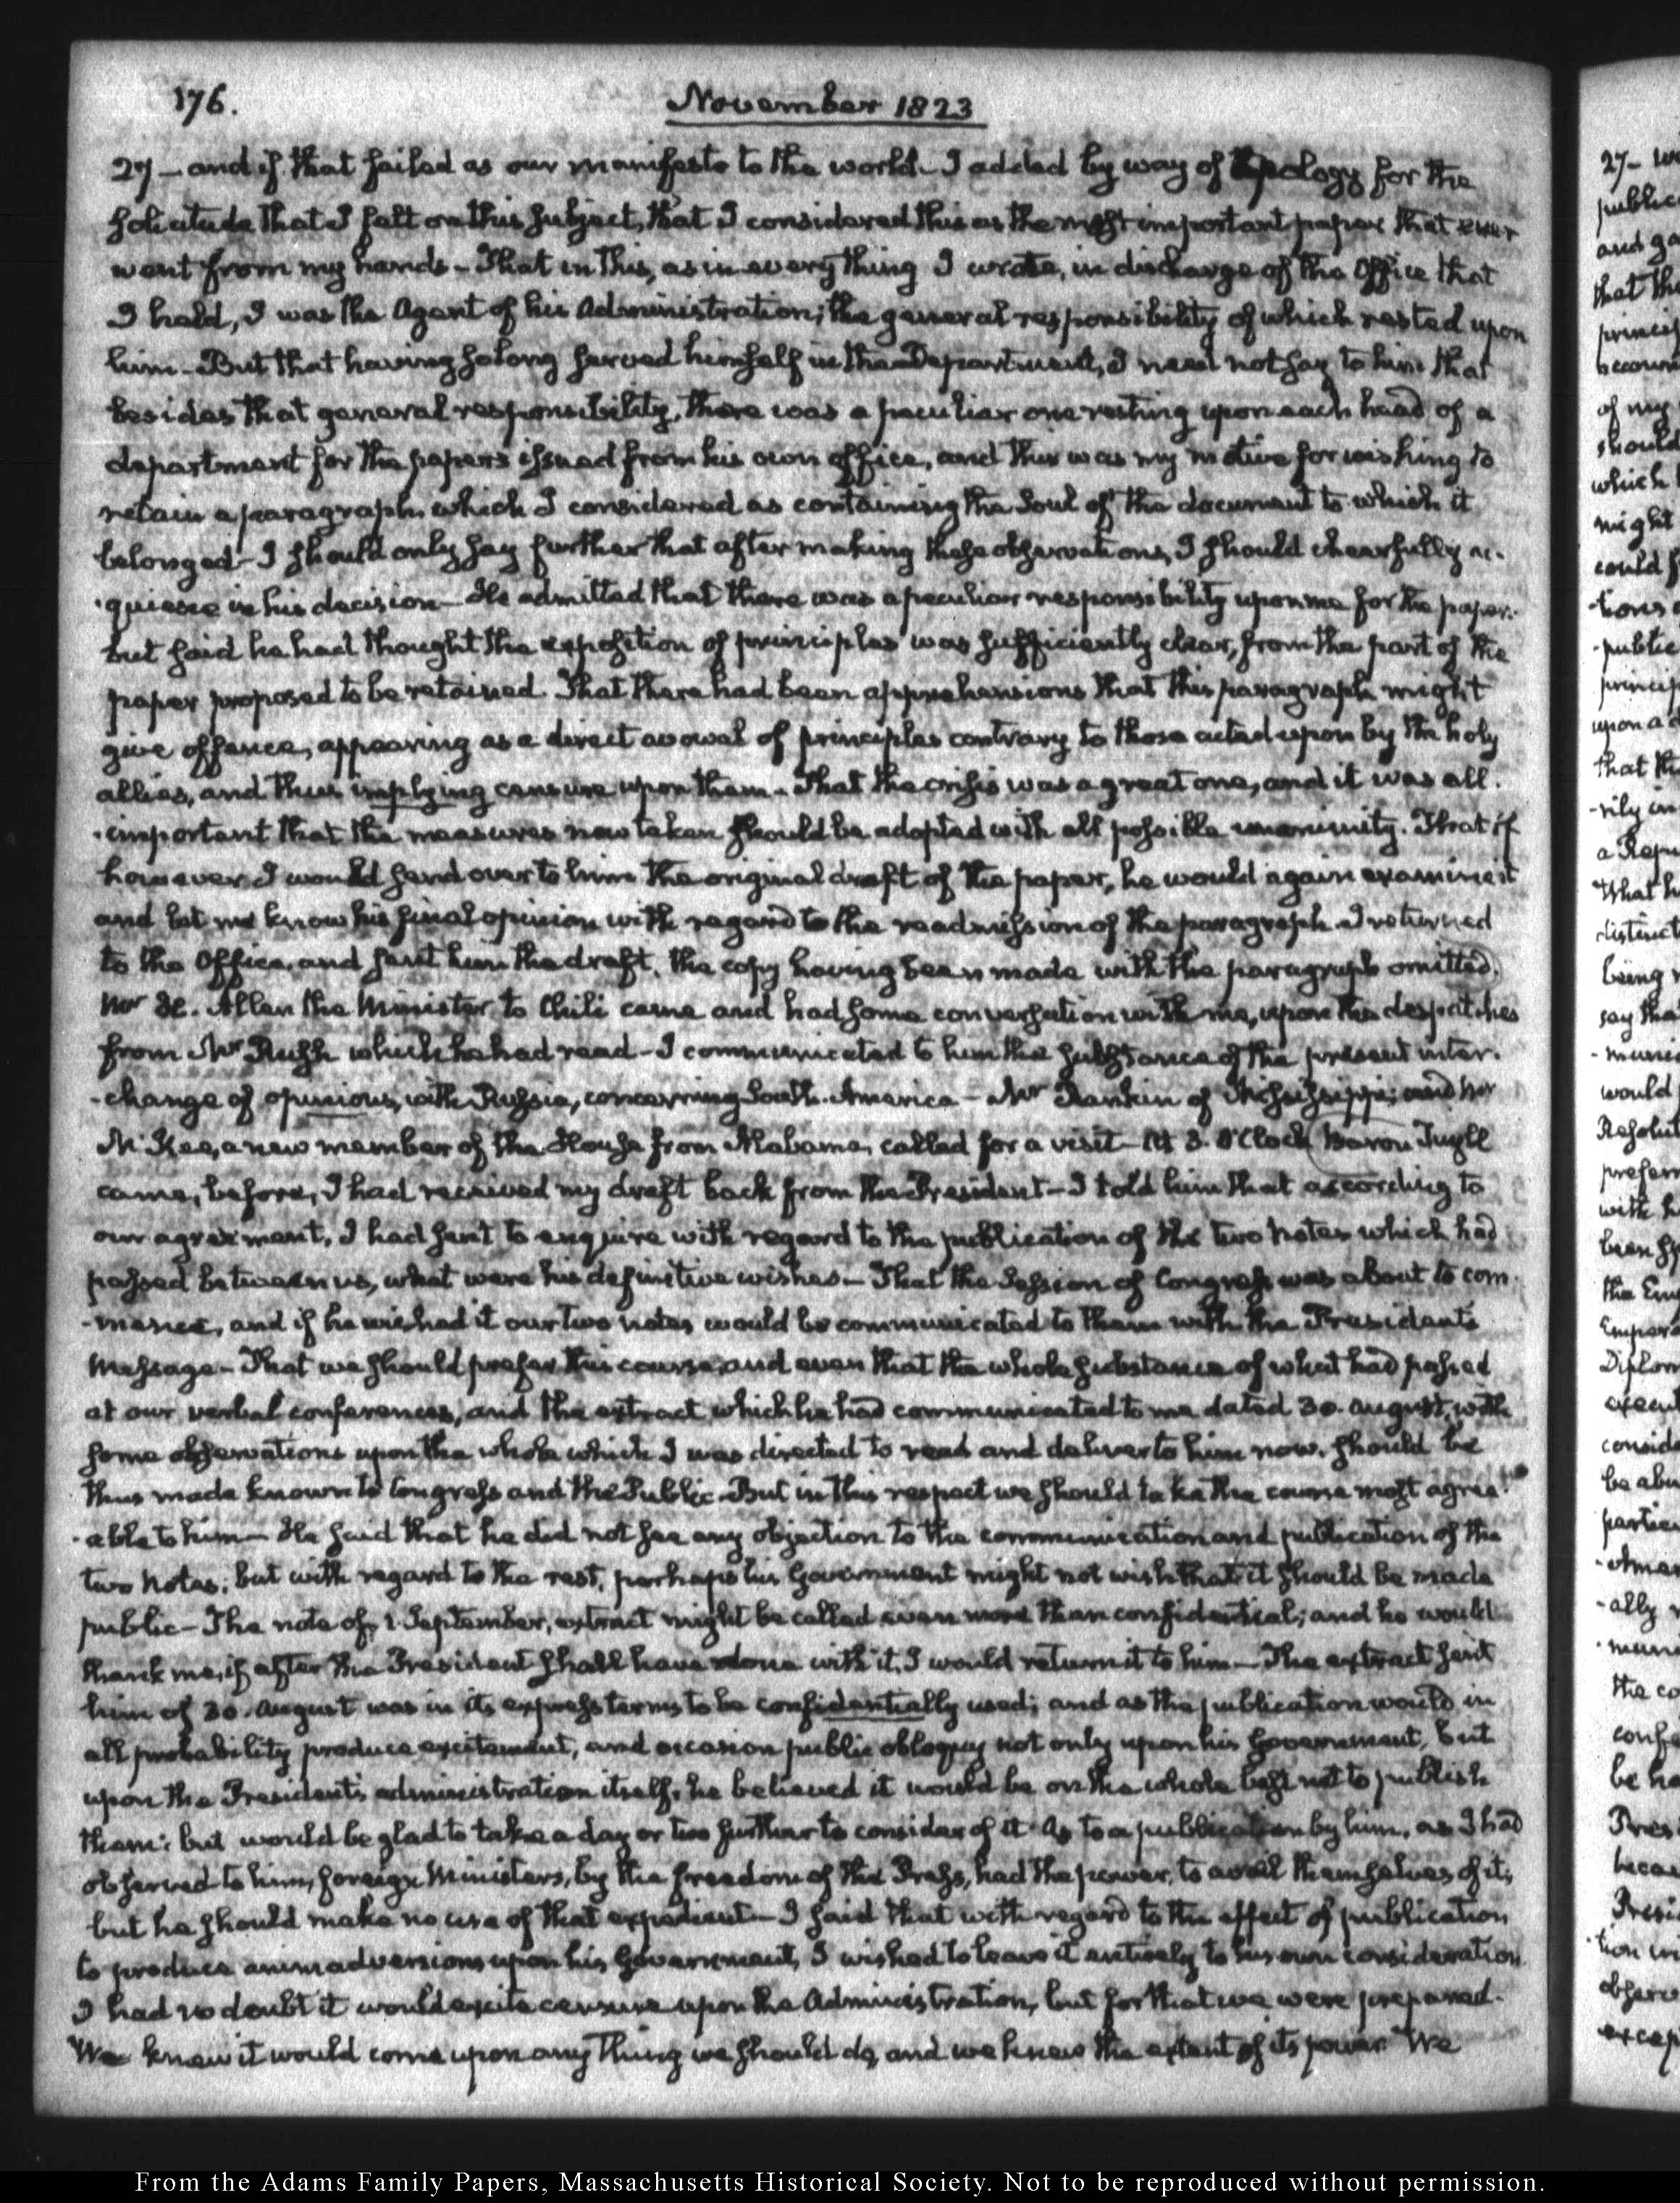 176.
November 1823
27 — and if that failed as our manifesto to the world — I added by way of Apology for the
solicitude that I felt on this subject, that I considered this as the most important paper that ever
went from my hands — That in this, as in every thing I wrote, in discharge of the Office that
I held, I was the Agent of his Administration; the general responsibility of which rested upon
him — But that having so long served himself in the Department, I need not say to him that
besides that general responsibility, there was a peculiar one resting upon each head of a
department for the papers issued from his own office, and this was my motive for wishing to
retain a paragraph which I considered as containing the Soul of the document to which it
belonged — I should only say further that after making these observations, I should chearfully ac-
-quiesce in his decision — He admitted that there was a peculiar responsibility upon me for the paper.
but said he had thought the exposition of principles was sufficiently clear, from the part of the
paper proposed to be retained. That there had been apprehensions that this paragraph might
give offence, appearing as a direct avowal of principles contrary to those acted upon by the holy
allies, and thus implying censure upon them — That the crisis was a great one, and it was all-
-important that the measures now taken should be adopted with all possible unanimity. That if
however I would send over to him the original draft of the paper, he would again examine it
and let me know his final opinion with regard to the readmission of the paragraph — I returned
to the Office, and sent him the draft, the copy having been made with the paragraph omitted.
Mr H. Allen the Minister to Chili came and had some conversation with me, upon the despatches
from Mr Rush which he had read — I communicated to him the substance of the present inter-
-change of opinions, with Russia, concerning South-America — Mr Rankin of Mississippi; and Mr
McKee, a new member of the House from Alabama, called for a visit — At 3. O'Clock Baron Tuyll
came, before, I had received my draft back from the President — I told him that according to
our agreement, I had sent to enquire with regard to the publication of the two notes which had
passed between us, what were his definitive wishes — That the Session of Congress was about to com-
-mence, and if he wished it our two notes would be communicated to them with the President's
Message — That we should prefer this course, and even that the whole substance of what had passed
at our verbal conferences, and the extract which he had communicated to me dated 30. August, with
some observations upon the whole which I was directed to read and deliver to him now, should be
thus made known to Congress and the Public — But in this respect we should take the course most agree-
-able to him — He said that he did not see any objection to the communication and publication of the
two Notes; but with regard to the rest, perhaps his Government might not wish that it should be made
public — The note of 1 September, extract might be called even more than confidential; and he would
thank me, if after the President shall have done with it, I would return it to him — The extract sent
him of 30. August was in its express terms to be confidentially used; and as the publication would in
all probability produce excitement, and occasion public obloquy not only upon his Government, but
upon the President's administration itself, he believed it would be on the whole best not to publish
them: but would be glad to take a day or two further to consider of it. As to a publication by him, as I had
observed to him, foreign Ministers, by the freedom of the Press, had the power, to avail themselves of it,
but he should make no use of that expedient — I said that with regard to the effect of publication
to produce animadversions upon his Government, I wished to leave it entirely to his own consideration.
I had no doubt it would excite censure upon the Administration, but for that we were prepared.
We knew it would come upon any thing we should do, and we knew the extent of its power. We
From the Adams Family Papers, Massachusetts Historical Society. Not to be reproduced without permission.